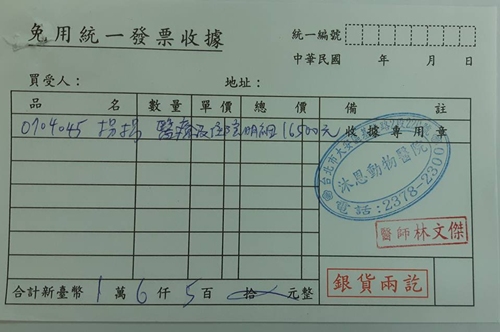 免用統一發票收據
統一編號
中華民國 年 月 日
買受人： 地址：
品名 數量 單價 總價 備註
0704045 揚揚 醫療及住院明細 16500元
收據專用章
沐恩動物醫院
電話：2378-2300
醫師林文傑
銀貨兩訖
合計新臺幣 1 萬 6 仟 5 百 拾 元整